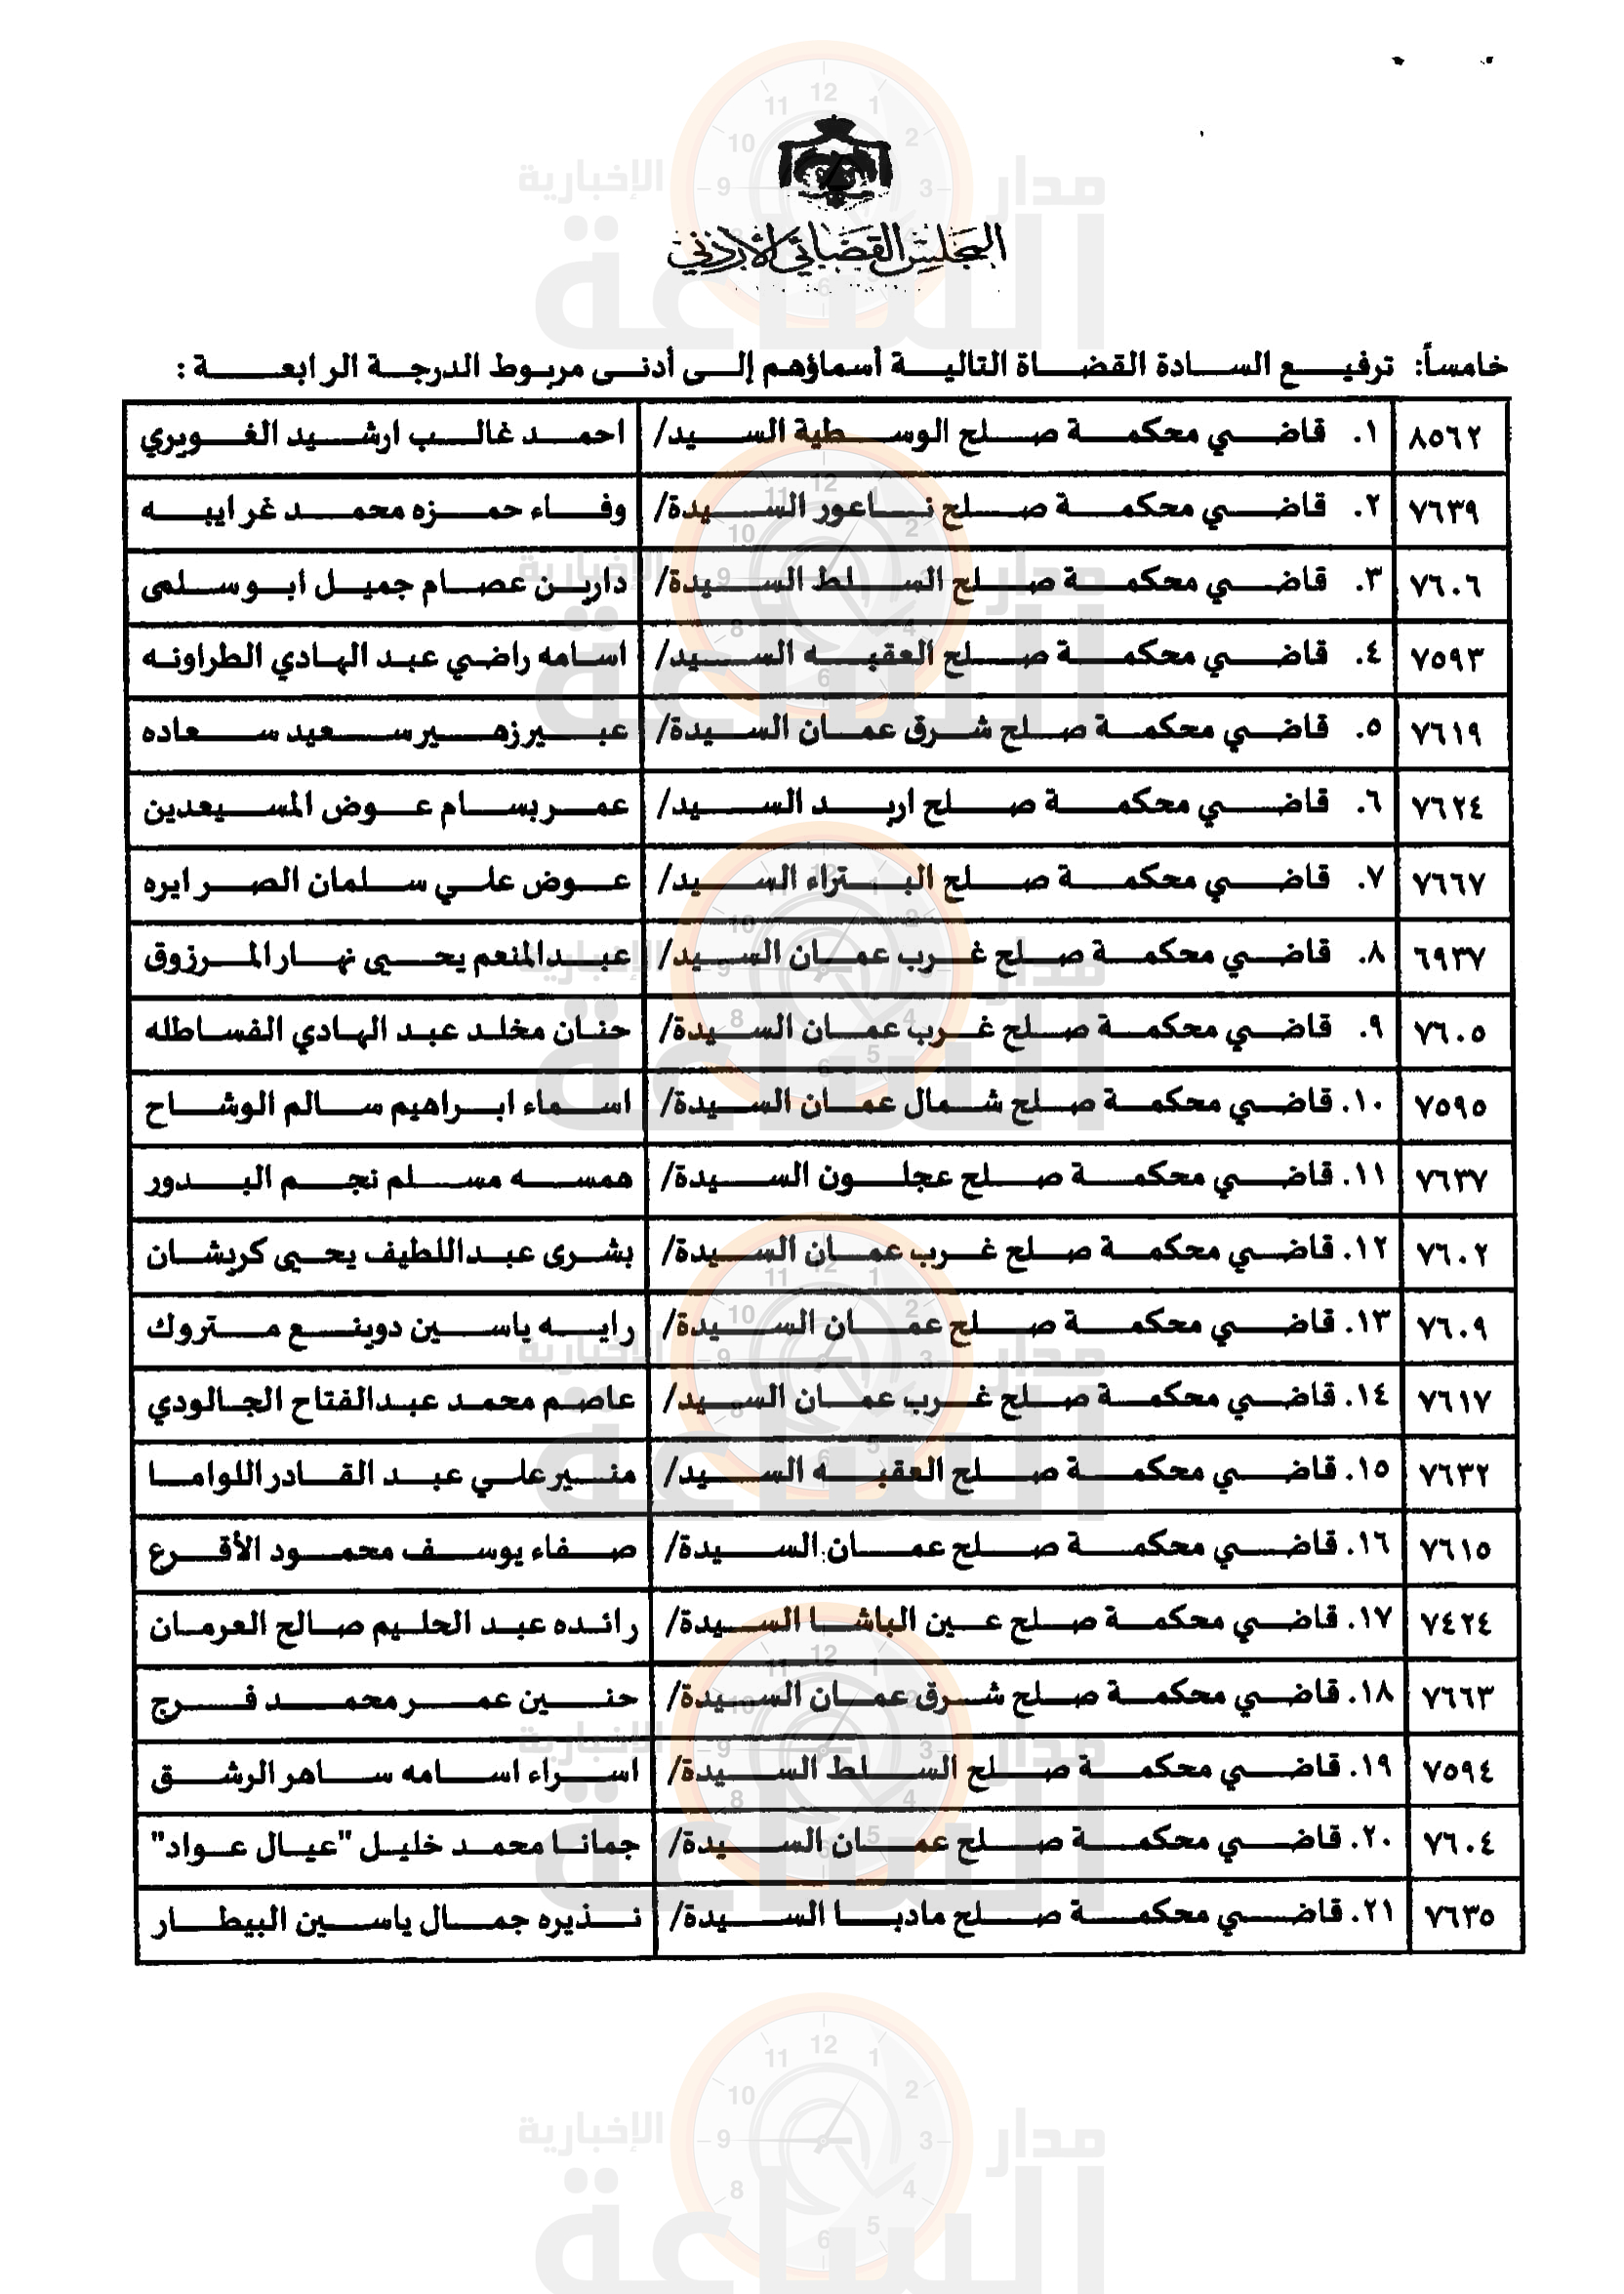 المجلس القضائي الأردني
خامساً: ترفيع السادة القضاة التالية أسماؤهم إلى أدنى مربوط الدرجة الرابعة :
٨٥٦٢ ١. قاضي محكمة صلح الوسطية السيد/ احمد غالب ارشيد الغويري
٧٦٣٩ ٢. قاضي محكمة صلح ناعور السيدة/ وفاء حمزه محمد غرايبه
٧٦٠٦ ٣. قاضي محكمة صلح السلط السيدة/ دارين عصام جميل ابو سلمى
٧٥٩٣ ٤. قاضي محكمة صلح العقبه السيد/ اسامه راضي عبد الهادي الطراونه
٧٦١٩ ٥. قاضي محكمة صلح شرق عمان السيدة/ عبير زهير سعيد سعاده
٧٦٢٤ ٦. قاضي محكمة صلح اربد السيد/ عمر بسام عوض المسيعدين
٧٦٦٧ ٧. قاضي محكمة صلح البتراء السيد/ عوض علي سلمان الصرايره
٦٩٣٧ ٨. قاضي محكمة صلح غرب عمان السيد/ عبدالمنعم يحيى نهار المرزوق
٧٦٠٥ ٩. قاضي محكمة صلح غرب عمان السيدة/ حنان مخلد عبد الهادي الفساطله
٧٥٩٥ ١٠. قاضي محكمة صلح شمال عمان السيدة/ اسماء ابراهيم سالم الوشاح
٧٦٣٧ ١١. قاضي محكمة صلح عجلون السيدة/ همسه مسلم نجم البدور
٧٦٠٢ ١٢. قاضي محكمة صلح غرب عمان السيدة/ بشرى عبداللطيف يحيى كريشان
٧٦٠٩ ١٣. قاضي محكمة صلح عمان السيدة/ رايه ياسين دوينع متروك
٧٦١٧ ١٤. قاضي محكمة صلح غرب عمان السيد/ عاصم محمد عبدالفتاح الجالودي
٧٦٣٢ ١٥. قاضي محكمة صلح العقبه السيد/ منير علي عبد القادر اللواما
٧٦١٥ ١٦. قاضي محكمة صلح عمان السيدة/ صفاء يوسف محمود الأقرع
٧٤٢٤ ١٧. قاضي محكمة صلح عين الباشا السيدة/ رائده عبد الحليم صالح العرمان
٧٦٦٣ ١٨. قاضي محكمة صلح شرق عمان السيدة/ حنين عمر محمد فرج
٧٥٩٤ ١٩. قاضي محكمة صلح السلط السيدة/ اسراء اسامه ساهر الرشق
٧٦٠٤ ٢٠. قاضي محكمة صلح عمان السيدة/ جمانا محمد خليل "عيال عواد"
٧٦٣٥ ٢١. قاضي محكمة صلح مادبا السيدة/ نذيره جمال ياسين البيطار
مدار الساعة الإخبارية